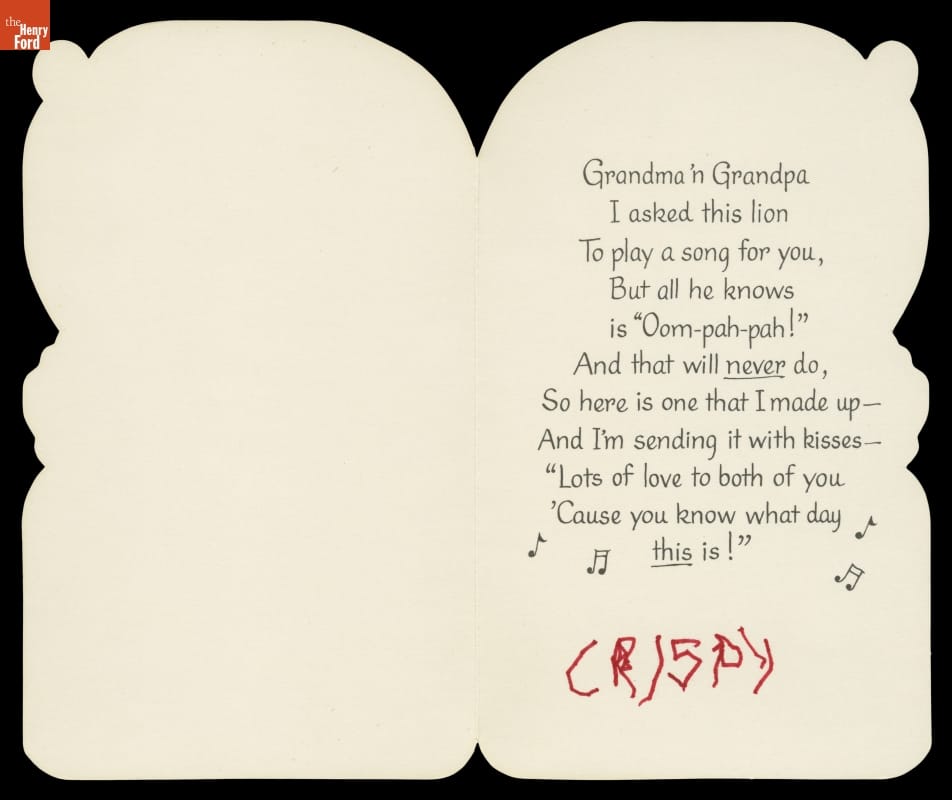 the
Henry
Ford
Grandma 'n Grandpa
I asked this lion
To play a song for you,
But all he knows
is “Oom-pah-pah!”
And that will never do,
So here is one that I made up—
And I'm sending it with kisses—
“Lots of love to both of you
'Cause you know what day
this is!”
CRISPY